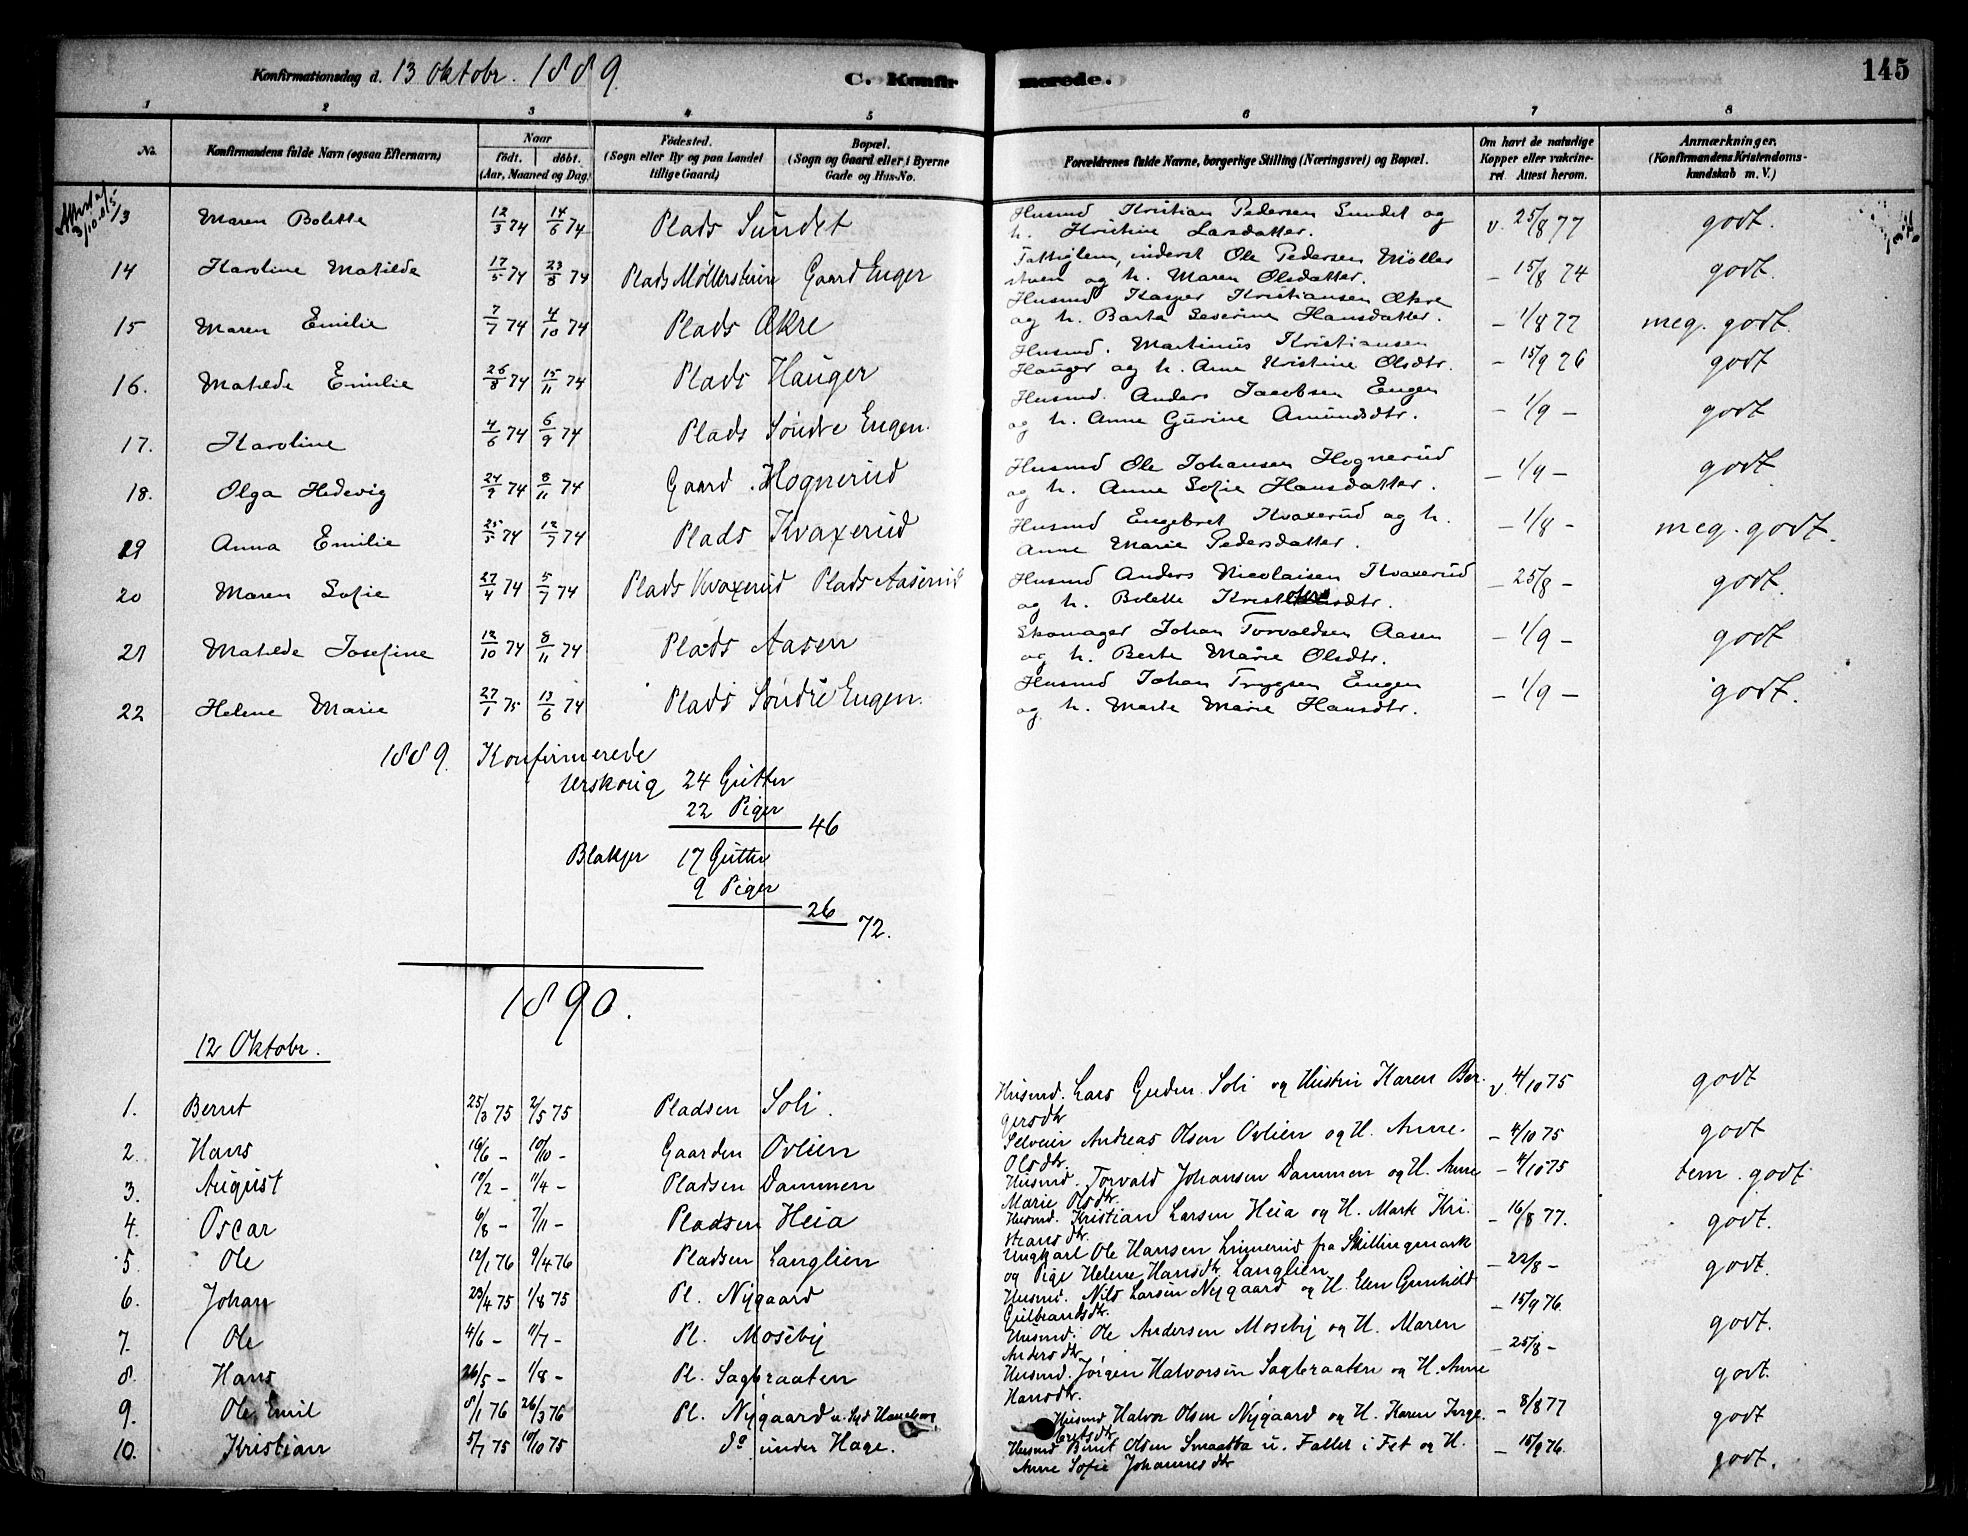 Konfirmationsdag d. 13 Oktobr. 1889. C. Konfirmerede. 145
1 2 3 4 5 6 7 8
No. Konfirmandens fulde Navn (ogsaa Efternavn) Naar födt. döbt. (Aar, Maaned og Dag) Födested. (Sogn eller By og paa Landet tillige Gaard) Bopæl. (Sogn og Gaard eller i Byerne Gade og Hus-No. Forældrenes fulde Navne, borgerlige Stilling (Næringsvei) og Bopæl. Om havt de naturlige Kopper eller vakcineret. Attest herom. Anmærkninger. (Konfirmandens Kristendomskundskab m. V.)
13 Maren Bolette 12/3 74 14/6 74 Plads Sundet Husmd Kristian Pedersen Sundet og h. Kristine Larsdatter. v. 25/8 77 godt.
14 Karoline Matilde 17/5 74 23/8 74 Plads Møllerstuen Gaard Enger Fattiglem, inderst Ole Pedersen Møllerstuen og h. Maren Olsdatter. – 15/8 74 godt.
15 Maren Emilie 7/7 74 4/10 74 Plads Økre Husmd Kasper Kristiansen Økre og h. Berta Severine Hansdatter. – 1/8 77 meg. godt.
16. Matilde Emilie 26/8 74 15/11 74 Plads Hauger Husmd. Martinus Kristiansen Hauger og h. Anne Kristine Olsdtr. – 15/9 76 godt
17. Karoline 4/6 74 6/9 74 Plads Søndre Engen. Husmd. Anders Jacobsen Engen og h. Anne Gurine Amundsdtr. – 1/9 – godt
18. Olga Hedevig 24/9 74 8/11 74 Gaard Hognerud Husmd Ole Johansen Hognerud og h. Anne Sofie Hansdatter. – 1/9 – godt
19 Anna Emilie 25/5 74 12/7 74 Plads Kvaxerud Husmd Engebret Kvaxerud og h. Anne Marie Pedersdatter. – 1/8 – meg. godt.
20 Maren Sofie 27/4 74 5/7 74 Plads Kvaxerud Plads Aaserud Husmd Anders Nicolaisen Kvaxerud og h. Bolette – 25/8 – godt.
21 Matilde Josefine 12/10 74 8/11 74 Plads Aasen Skomager Johan Torvaldsen Aasen og h. Berte Marie Olsdtr. – 1/9 – godt
22 Helene Marie 27/1 75 13/6 74 Plads Søndre Engen. Husmd Johan Trygsen Engen og h. Marte Marie Hansdtr. – 1/9 – godt.
1889. Konfirmerede
Urskoug 24 Gutter
22 Piger
46
Blakjer 17 Gutter
9 Piger
26
72.
1890.
12 Oktobr.
1. Bernt 25/3 75 2/5 75 Pladsen Soli. Husmd. Lars Guden. Soli og Hustru Karen Bergersdtr v. 4/10 75 godt
2. Hans 16/6 – 10/10 – Gaarden Ovlien Selveier Andreas Olsen Ovlien og H. Anne Olsdtr. – 4/10 75 godt
3. August 10/2 – 11/4 – Pladsen Dammen Husmd. Torvald Johansen Dammen og H. Anne Marie Olsdtr. – 4/10 75 tem. godt
4. Oscar 6/8 – 7/11 – Pladsen Heia Husmd. Kristian Larsen Heia og H. Marte Kristiansdtr. – 16/8 77. godt.
5 Ole 12/1 76 9/4 76 Pladsen Langlien Ungkarl Ole Hansen Linnerud fra Skillingmark og Pige Helene Hansdtr. Langlien – 22/8 – godt.
6. Johan 23/4 75 1/8 75 Pl. Nygaard Husmd. Nils Larsen Nygaard og H. Elen Gunhild Gulbrandsdtr. – 15/9 76. godt.
7. Ole 4/6 – 11/7 – Pl. Moseby Husmd. Ole Andersen Moseby og H. Maren Andersdtr – 25/8 –
8. Hans 26/5 – 1/8 – Pl. Sagbraaten Husmd. Jørgen Halvorsen Sagbraaten og H. Anne Hansdtr. godt.
9. Ole Emil 8/1 76 26/3 76 Pl. Nygaard u. Husmd Halvor Olsen Nygaard og H. Karen Ingebretsdtr. – 8/8 77 godt
10. Kristian 5/7 75 10/10 75 do under Hage. Husmd Bernt Olsen Smaatta u. Faller i Fet og H. Anne Sofie Johannesdtr – 15/9 76. godt.